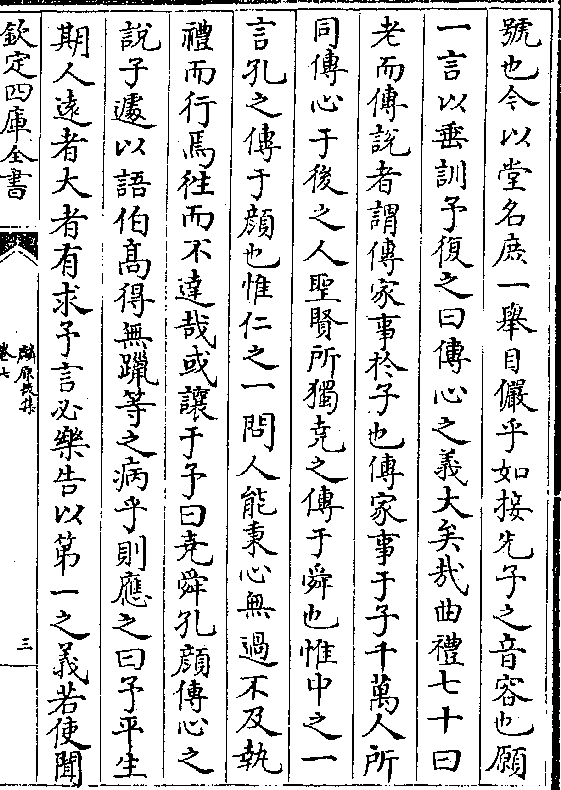 號也今以堂名庶一舉目儼乎如接先子之音容也願
一言以垂訓予復之曰傳心之義大矣哉曲禮七十曰
老而傳說者謂傳家事於子也傳家事于子千萬人所
同傳心于後之人聖賢所獨堯之傳于舜也惟中之一
言孔之傳于顔也惟仁之一問人能秉心無過不及執
禮而行焉徃而不達哉或讓于予曰堯舜孔顔傳心之
說子遽以語伯髙得無躐等之病乎則應之曰予平生
期人遠者大者有求予言必樂告以第一之義若使聞
欽定四庫全書
麟原文集
卷七
三